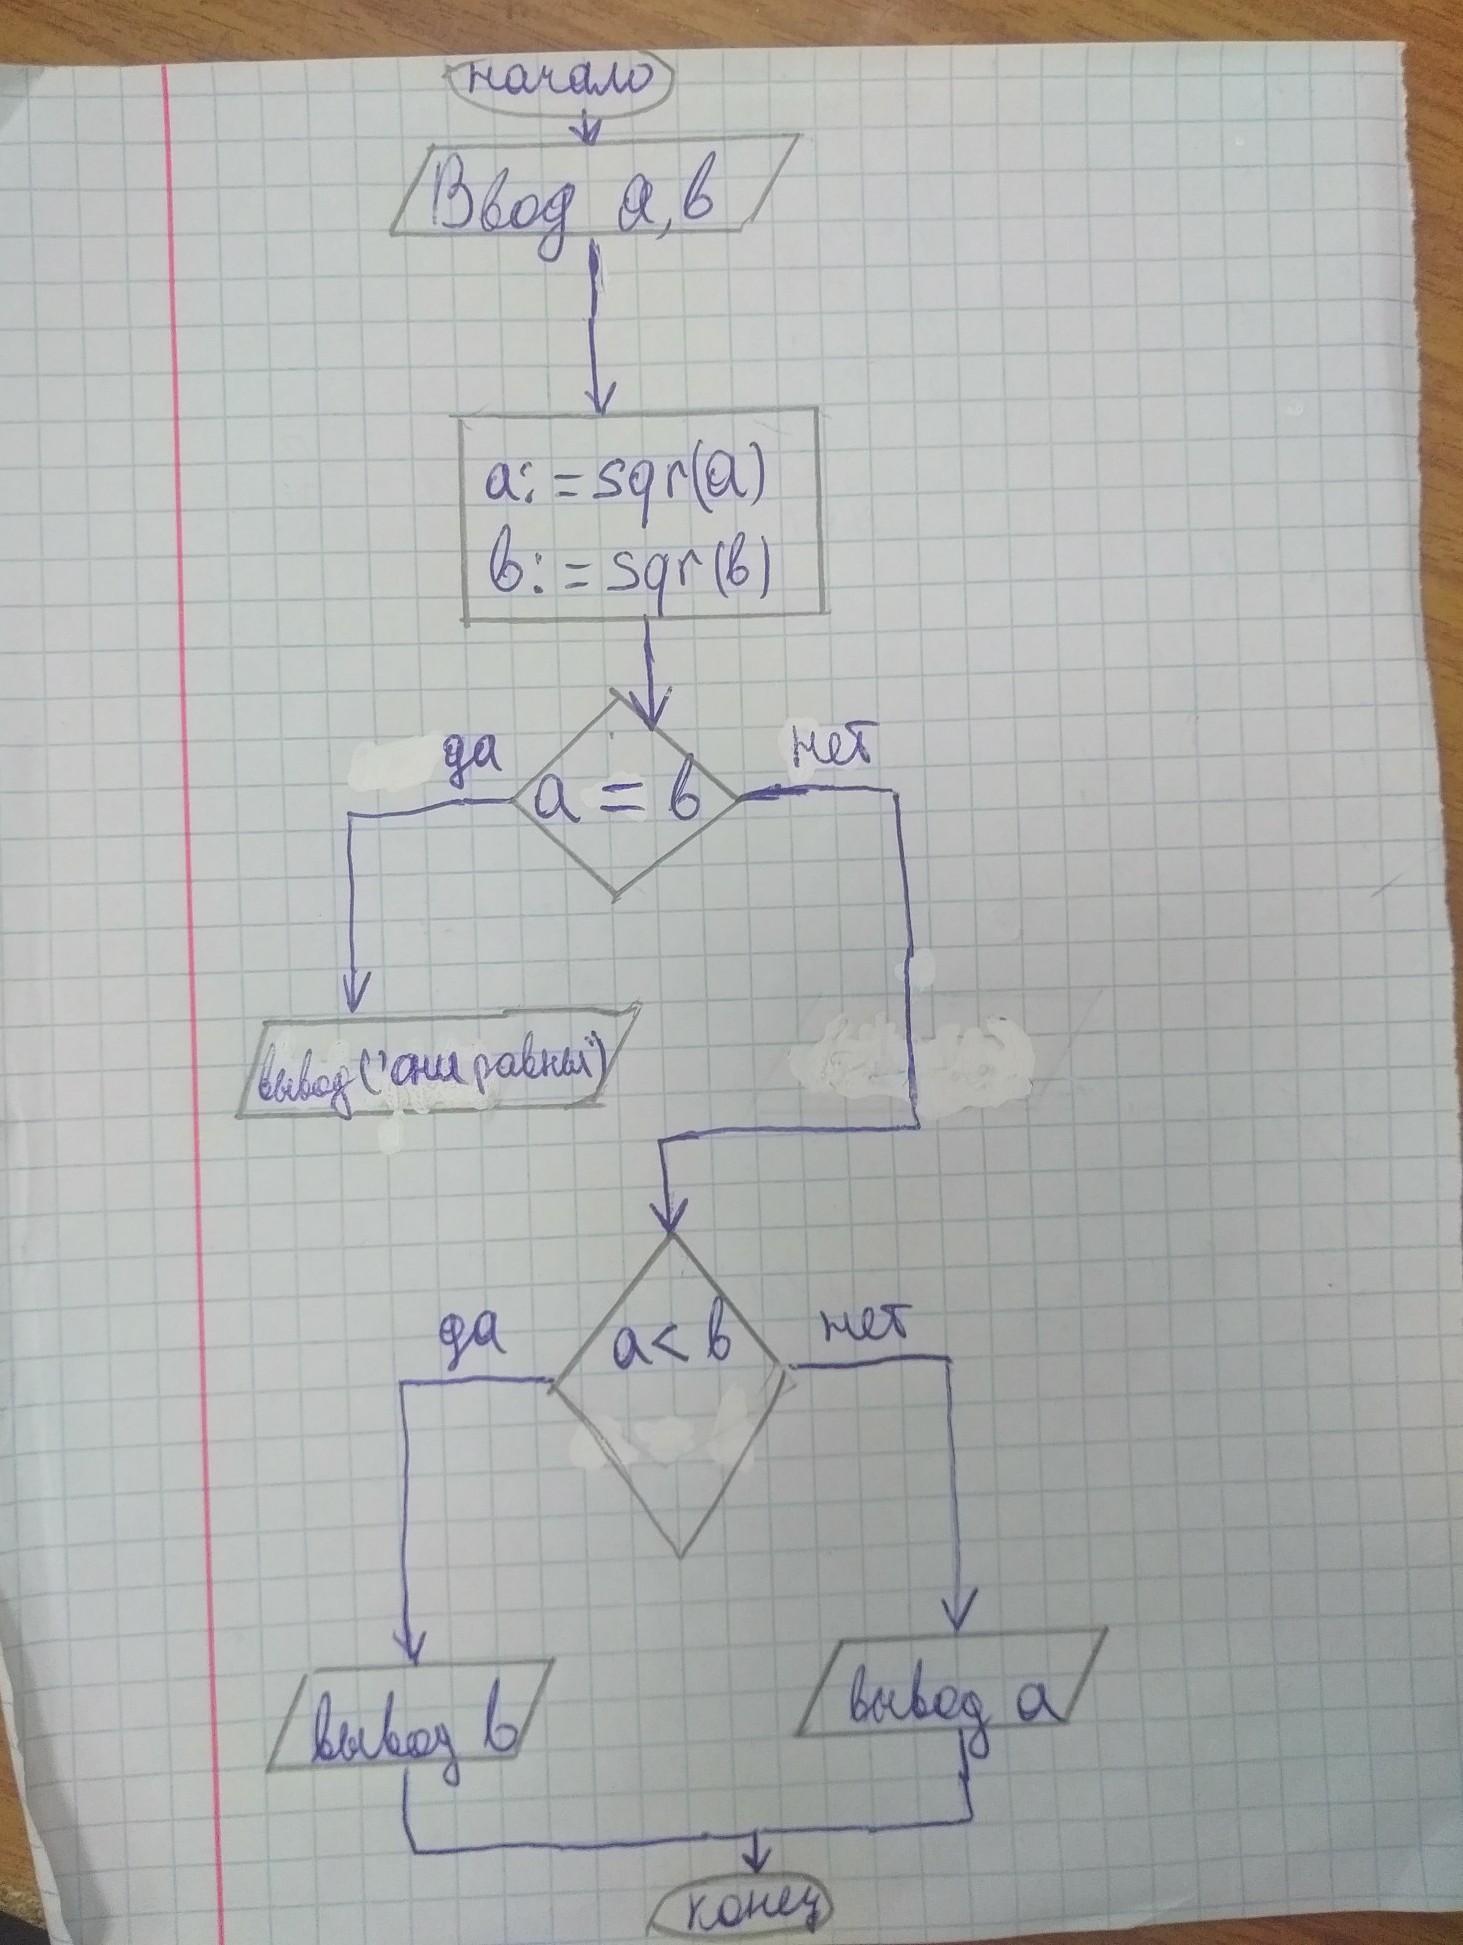 начало
Ввод а, в
a:=sqr(a)
в:=sqr(в)
да
нет
а = в
вывод ('они равны')
да
нет
а< в
вывод в
вывод а
конец